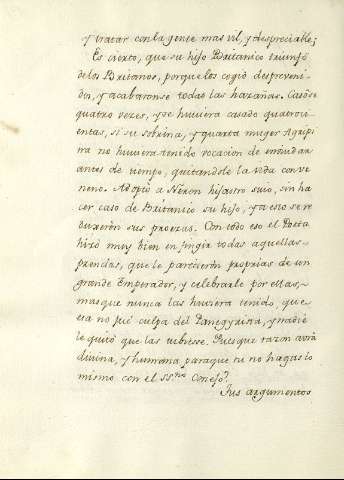 y tratar con la gente mas vil, y despreciable;
Es cierto, que su hijo Britanico triunfó
de los Britanos, porque los cogió despreveni-
dos, y acabaronse todas las hazañas. Casòse
quatro vezes, y se huviera casado quatrocie-
entas, si su sobrina, y quarta muger Agripi-
na no huviera tenido vocacion de enviudar
antes de tiempo, quitandole la vida con ve-
neno. Adoptò a Nèron hijastro suio, sin ha
cer caso de Britanico su hijo, y a eso se re
duxeròn sus proezas. Con todo eso el Poeta
hizò muy bien en fingir todas aquellas
prendas, que le parecieròn proprias de un
grande Emperador, y celebrarle por ellas,
mas que nunca las huviera tenido, que
esa no fuè culpa del Panegyrista, y nadie
le quitò que las tubiesse. Pues que razon avrà
divina, y humana para que tu no hagas lo
mismo con el SS.mo Conejo?
Tus argumentos